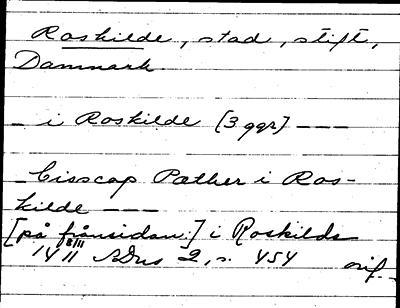 Roskilde, stad, stift,
Danmark.
– i Roskilde [3 ggr] – – –
– biscop Pæther i Ros-
kilde – – –
[på frånsidan:] i Roskilde
14 8/11 11 SDns 2, s. 454 orig.